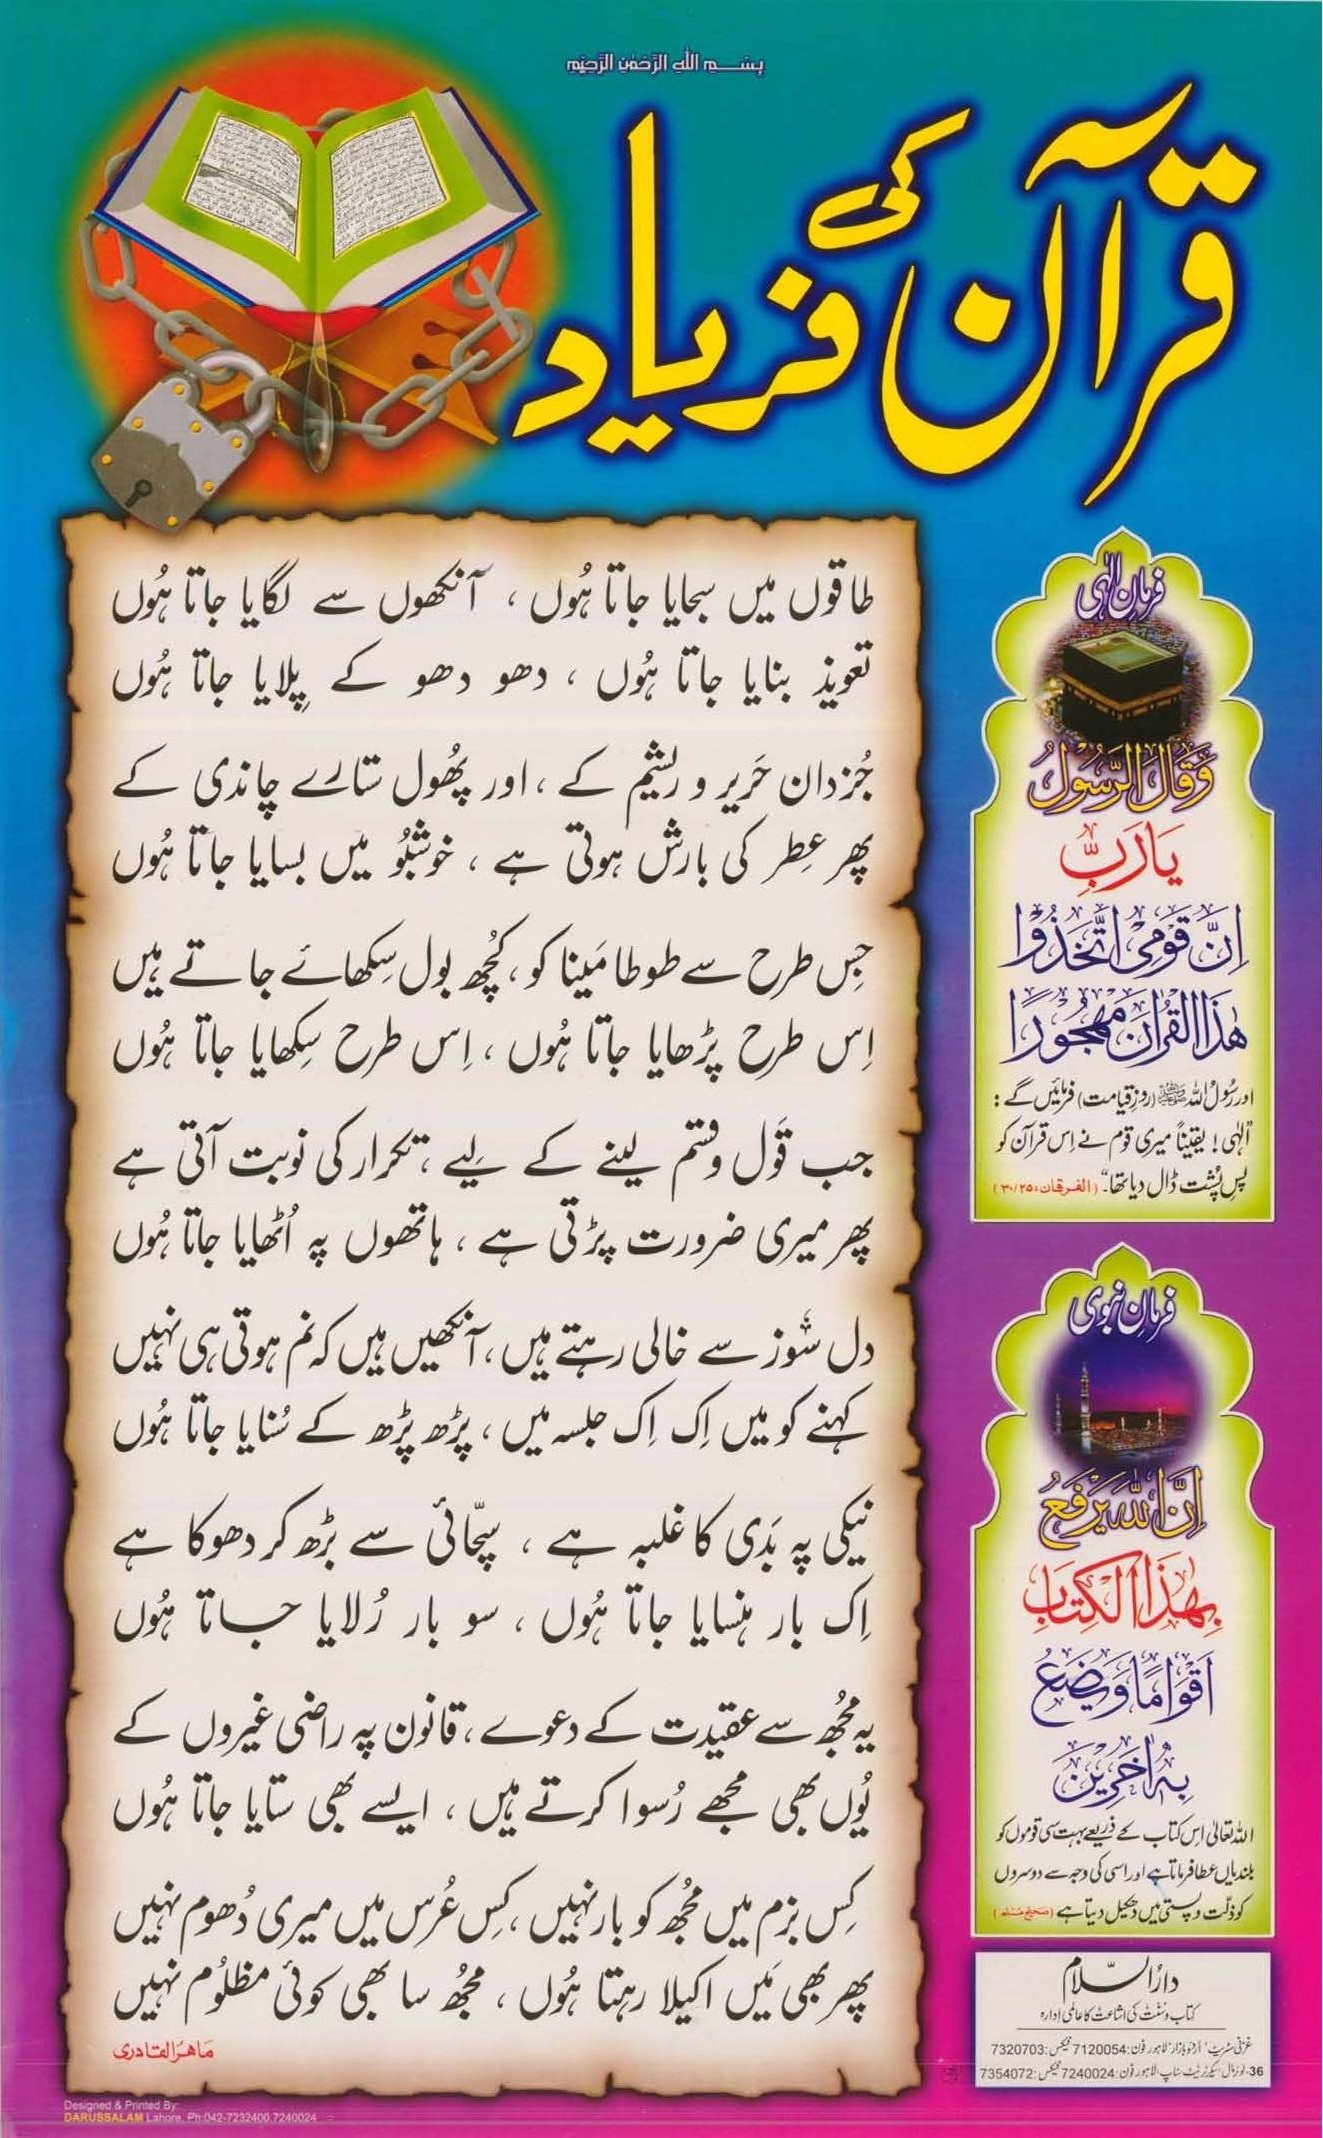 بِسْمِ اللهِ الرَّحْمٰنِ الرَّحِیْمِ
قرآن کی فریاد
طاقوں میں سجایا جاتا ہُوں ، آنکھوں سے لگایا جاتا ہُوں
تعویذ بنایا جاتا ہُوں ، دھو دھو کے پِلایا جاتا ہُوں
جُزدان حَریر و ریشم کے ، اور پھُول ستارے چاندی کے
پھر عِطر کی بارش ہوتی ہے ، خوشبُو میں بسایا جاتا ہُوں
جِس طرح سے طوطا مَینا کو ، کُچھ بول سِکھائے جاتے ہیں
اِس طرح پڑھایا جاتا ہُوں ، اِس طرح سِکھایا جاتا ہُوں
جب قَول وقسم لینے کے لیے ، تکرار کی نوبت آتی ہے
پھر میری ضرورت پڑتی ہے ، ہاتھوں پہ اُٹھایا جاتا ہُوں
دل سُوز سے خالی رہتے ہیں ، آنکھیں ہیں کہ نم ہوتی ہی نہیں
کہنے کو میں اِک اِک جلسہ میں ، پڑھ پڑھ کے سُنایا جاتا ہُوں
نیکی پہ بَدی کا غلبہ ہے ، سچّائی سے بڑھ کر دھوکا ہے
اِک بار ہنسایا جاتا ہُوں ، سو بار رُلایا جاتا ہُوں
یہ مجُھ سے عقیدت کے دعوے ، قانون پہ راضی غیروں کے
یُوں بھی مجھے رُسوا کرتے ہیں ، ایسے بھی ستایا جاتا ہُوں
کِس بزم میں مجُھ کو بار نہیں ، کِس عُرس میں میری دُھوم نہیں
پھر بھی مَیں اکیلا رہتا ہُوں ، مجُھ سا بھی کوئی مظلُوم نہیں
ماہر القادری
فرمانِ الٰہی
وَقَالَ الرَّسُوْلُ
یَا رَبِّ
اِنَّ قَوْمِی اتَّخَذُوْا
هٰذَا الْقُرْاٰنَ مَهْجُوْرًا
اور رسُولُ اللہ ﷺ (روزِ قیامت) فرمائیں گے :
الٰہی! یقیناً میری قوم نے اِس قرآن کو
پسِ پُشت ڈال دیا تھا۔" (الفرقان:۳۰/۲۵)
فرمانِ نبوی
اِنَّ اللهَ یَرْفَعُ
بِهٰذَا الْکِتَابِ
اَقْوَامًا وَیَضَعُ
بِهٖ اٰخَرِیْنَ
اللہ تعالیٰ اِس کتاب کے ذریعے بہت سی قوموں کو
بلندیاں عطا فرماتا ہے اور اسی کی وجہ سے دوسروں
کو ذلّت و پستی میں دھکیل دیتا ہے (صحیح مسلم)
دارُالسّلام
کتاب و سُنّت کی اشاعت کا عالمی ادارہ
غزنی سٹریٹ ' اُردو بازار' لاہور فون: 7120054 فیکس: 7320703
36-لوئر مال، سیکرٹریٹ سٹاپ، لاہور فون: 7240024 فیکس: 7354072
Designed & Printed By:
DARUSSALAM Lahore. Ph:042-7232400 7240024